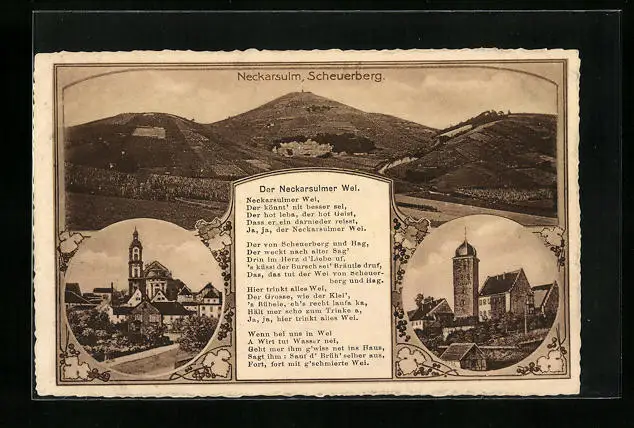 Neckarsulm, Scheuerberg.
Der Neckarsulmer Wei.
Neckarsulmer Wei,
Der könnt' nit besser sei,
Der hot leba, der hot Geist,
Dass er ein darnieder reisst,
Ja, ja, der Neckarsulmer Wei.
Der von Scheuerberg und Hag,
Der weckt nach alter Sag'
Drin im Herz d'Liebe uf,
's küsst der Bursch sei' Bräutle druf,
Das, das tut der Wei von Scheuer-
berg und Hag.
Hier trinkt alles Wei,
Der Grosse, wie der Klei',
's Bübele, eh's recht laufa ka,
Hält mer scho zum Trinke a,
Ja, ja, hier trinkt alles Wei.
Wenn bei uns in Wei
A Wirt tut Wasser nei,
Geht mer ihm g'wiss net ins Haus,
Sagt ihm: Sauf d' Brüh' selber aus,
Fort, fort mit g'schmierte Wei.